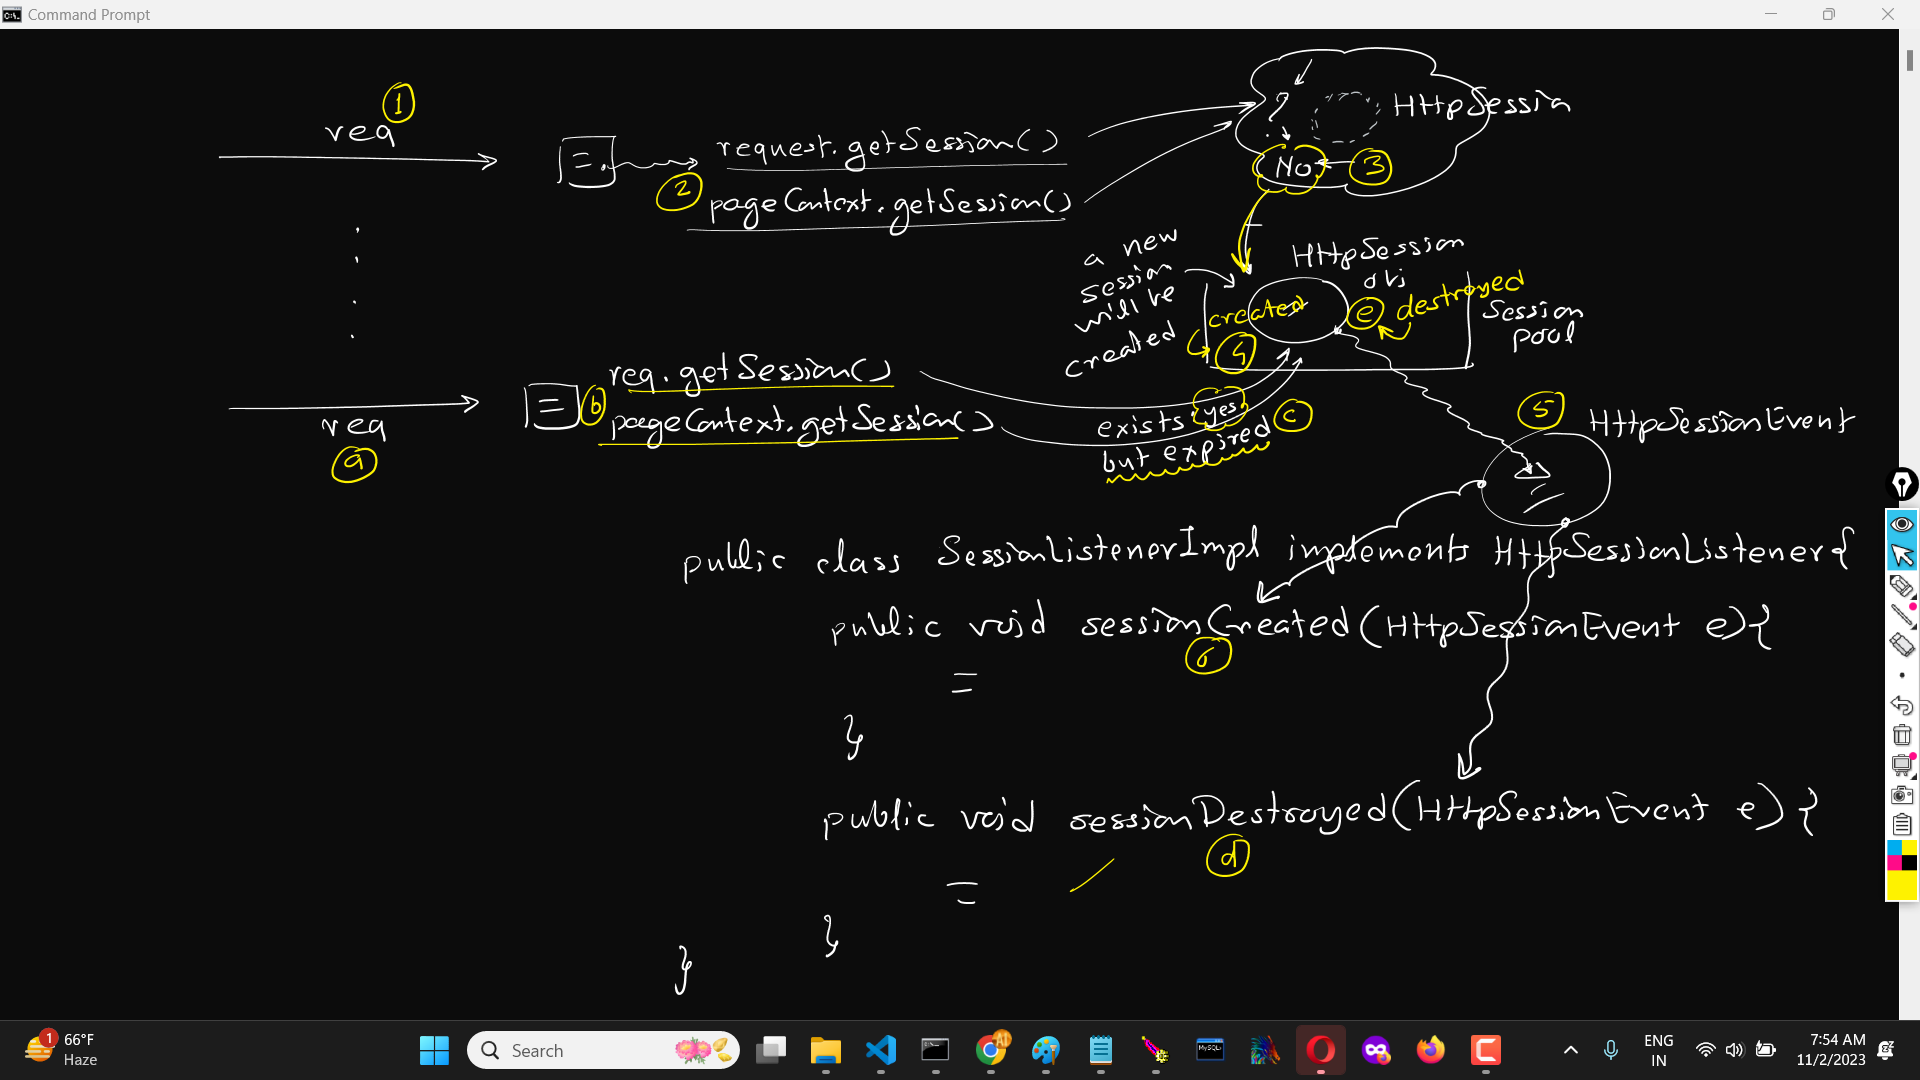 Command Prompt
1
req
request.getSession()
2
pageContext.getSession()
?
HttpSession
No
3
a new
session
will be
created
HttpSession
obj
created
4
e
destroyed
Session
pool
req.getSession()
b
pageContext.getSession()
req
a
exists yes
but expired
c
5
HttpSessionEvent
public class SessionListenerImpl implements HttpSessionListener{
public void sessionCreated(HttpSessionEvent e){
6
}
public void sessionDestroyed(HttpSessionEvent e){
d
}
}
1
66°F
Haze
Search
AI
MySQL
ENG
IN
7:54 AM
11/2/2023